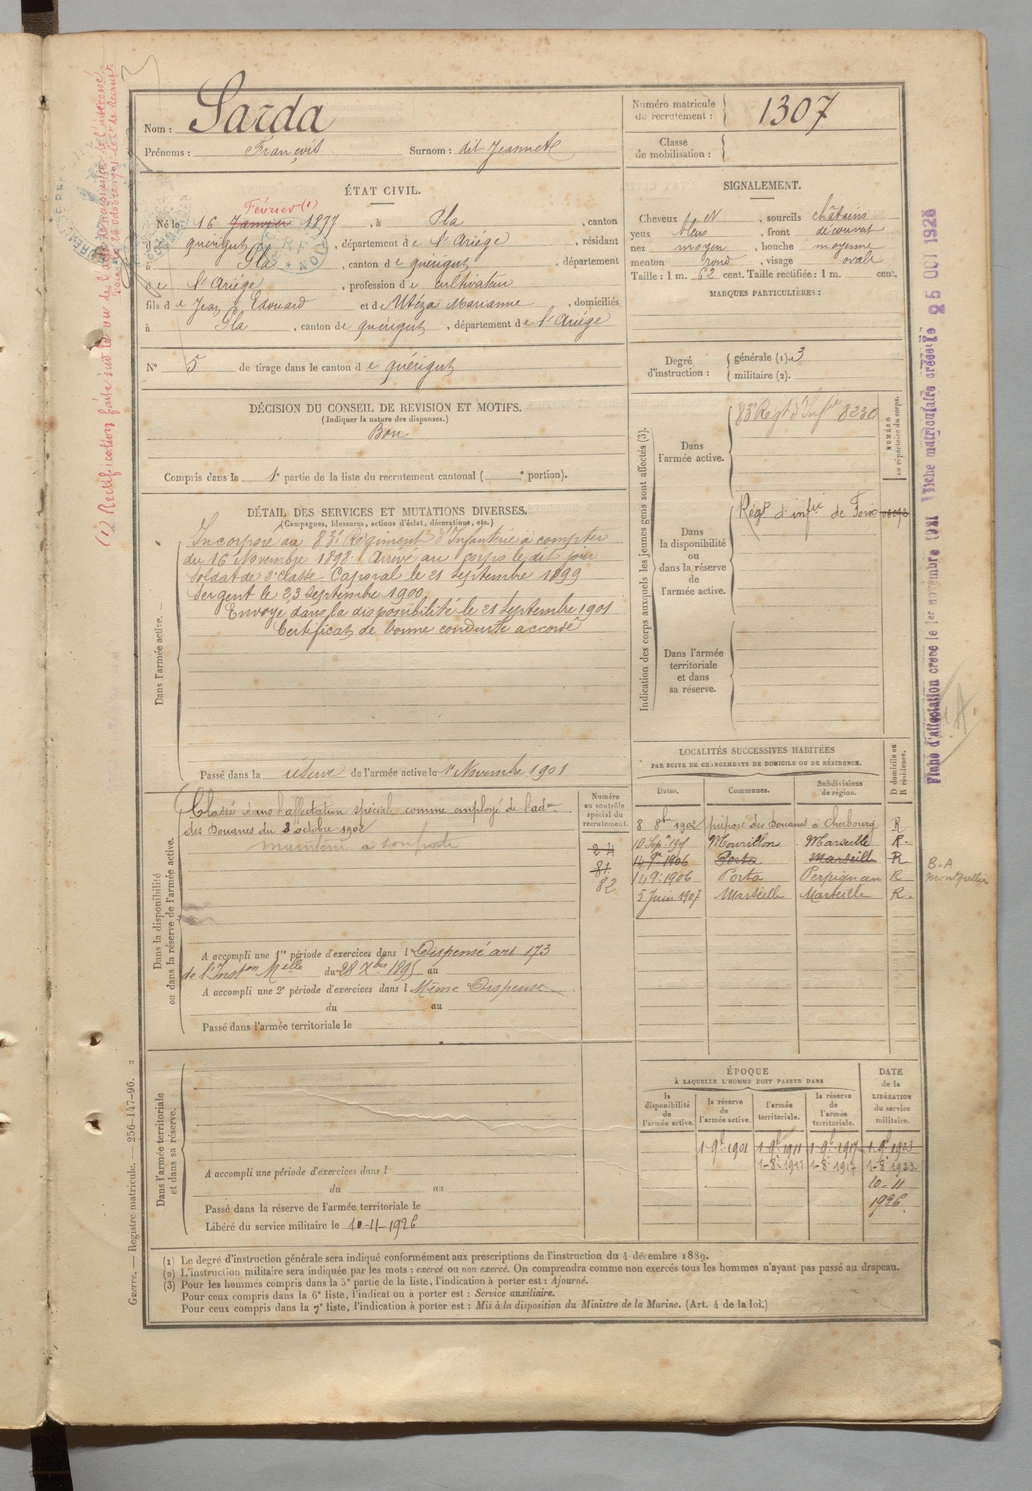 Nom : Sarda
Prénoms : François Surnom : dit Jeannet
Numéro matricule du recrutement : 1307
Classe de mobilisation :
ÉTAT CIVIL.
Février (1)
Né le 16 Janvier 1877, à Pla, canton
de quérigut, département de l'Ariége, résidant
à Pla, canton de quérigut, département
de l'Ariége, profession de cultivateur
fils de Jean Edouard et de Utéza Marianne, domiciliés
à Pla, canton de quérigut, département de l'Ariége
N° 5 de tirage dans le canton de quérigut
SIGNALEMENT.
Cheveux et N, sourcils châtains
yeux bleus, front découvert
nez moyen, bouche moyenne
menton rond, visage ovale
Taille : 1 m. 62 cent. Taille rectifiée : 1 m. cent.
MARQUES PARTICULIÈRES :
Degré d'instruction : générale (1). 3
militaire (2).
DÉCISION DU CONSEIL DE REVISION ET MOTIFS.
(Indiquer la nature des dispenses.)
Bon
Compris dans la 1e partie de la liste du recrutement cantonal ( e portion).
DÉTAIL DES SERVICES ET MUTATIONS DIVERSES.
(Campagnes, blessures, actions d'éclat, décorations, etc.)
Dans l'armée active.
Incorporé au 83e Régiment d'Infanterie à compter
du 16 Novembre 1898. Arrivé au corps le dit jour
soldat de 2e classe. Caporal le 21 septembre 1899
Sergent le 23 septembre 1900.
Envoyé dans la disponibilité le 21 septembre 1901
Certificat de bonne conduite accordé
Passé dans la réserve de l'armée active le 1r Novembre 1901
Indication des corps auxquels les jeunes gens sont affectés (3).
NUMÉRO au répertoire du corps.
Dans l'armée active.
83e Régt d'Infie 8230
Dans la disponibilité ou dans la réserve de l'armée active.
Régt d'infie de Foix
Dans l'armée territoriale et dans sa réserve.
Dans la disponibilité ou dans la réserve de l'armée active.
Numéro au contrôle spécial du recrutement.
Classé dans l'affectation spéciale comme employé de l'adon
des Douanes du 8 octobre 1902
maintenu à son poste
24
81
82
A accompli une 1re période d'exercices dans l Dispensé art 173
de l'Inston Melle du 28 Xbre 1895 au
A accompli une 2e période d'exercices dans l Même Dispense
du au
Passé dans l'armée territoriale le
LOCALITÉS SUCCESSIVES HABITÉES
PAR SUITE DE CHANGEMENTS DE DOMICILE OU DE RÉSIDENCE.
Dates. Communes. Subdivisions de région. D domicile ou R résidence.
8 8bre 1902 préposé des Douanes à Cherbourg R
10 Sepbre 1905 Mourillon Marseille R.
14 9e 1906 Porta Marseille R
14 9e 1906 Porta Perpignan R
5 Juin 1907 Marseille Marseille R.
B.A
Montpellier
Dans l'armée territoriale et dans sa réserve.
A accompli une période d'exercices dans l
du au
Passé dans la réserve de l'armée territoriale le
Libéré du service militaire le 10-11-1926
ÉPOQUE
À LAQUELLE L'HOMME DOIT PASSER DANS
la disponibilité de l'armée active. la réserve de l'armée active. l'armée territoriale. la réserve de l'armée territoriale.
DATE de la LIBÉRATION du service militaire.
1-9b 1901 1-9b 1911 1-9b 1917 1-9b 1923
1-8b 1911 1-8b 1917 1-8b 1923
10-11
1926
(1) Le degré d'instruction générale sera indiqué conformément aux prescriptions de l'instruction du 4 décembre 1889.
(2) L'instruction militaire sera indiquée par les mots : exercé ou non exercé. On comprendra comme non exercés tous les hommes n'ayant pas passé au drapeau.
(3) Pour les hommes compris dans la 5e partie de la liste, l'indication à porter est : Ajourné.
Pour ceux compris dans la 6e liste, l'indication à porter est : Service auxiliaire.
Pour ceux compris dans la 7e liste, l'indication à porter est : Mis à la disposition du Ministre de la Marine. (Art. 4 de la loi.)
Guerre. — Registre matricule. — 256-147-96.
(1) Rectification faite sur le vu de l'acte de naissance de l'intéressé
Fiche d'affectation créée le 1er novembre 1921 Fiche matriculaire créée le 25 OCT 1926